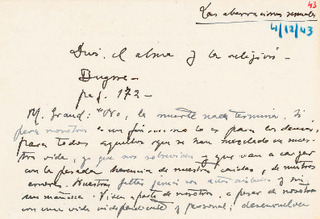 43
Las aberraciones sexuales
4/12/43
Dios, el alma y la religión -
Dugove -
pag. 172 -
M. Graud: "No, la muerte nada termina. Si
para nosotros es un fin, no lo es para los demas,
para todos aquellos que se han mezclado en nues
tra vida, ya que nos sobreviven y que van a cargar
con la pesada herencia de nuestros y de nuestros
errores. Nuestras faltas y
sin nosotros. Viven aparte de nosotros, a pesar de nosotros
con una vida independiente y personal, desenvuelven